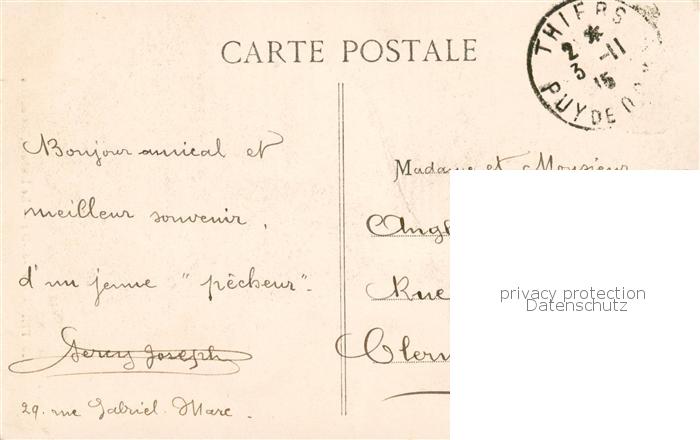 CARTE POSTALE
THIERS
2 *
3 -11
15
PUY DE DOM
Bonjour amical et
meilleur souvenir,
d'un jeune "pêcheur".
Joseph
29. rue Gabriel Marc.
Madame et Monsieur
Angl
Rue
Clerm
privacy protection
Datenschutz